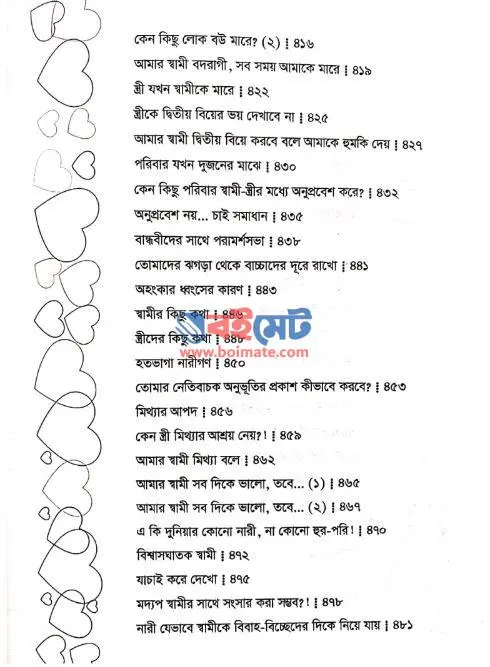 কেন কিছু লোক বউ মারে? (২) ⁞ ৪১৬
আমার স্বামী বদরাগী, সব সময় আমাকে মারে ⁞ ৪১৯
স্ত্রী যখন স্বামীকে মারে ⁞ ৪২২
স্ত্রীকে দ্বিতীয় বিয়ের ভয় দেখাবে না ⁞ ৪২৫
আমার স্বামী দ্বিতীয় বিয়ে করবে বলে আমাকে হুমকি দেয় ⁞ ৪২৭
পরিবার যখন দুজনের মাঝে ⁞ ৪৩০
কেন কিছু পরিবার স্বামী-স্ত্রীর মধ্যে অনুপ্রবেশ করে? ⁞ ৪৩২
অনুপ্রবেশ নয়... চাই সমাধান ⁞ ৪৩৫
বান্ধবীদের সাথে পরামর্শসভা ⁞ ৪৩৮
তোমাদের ঝগড়া থেকে বাচ্চাদের দূরে রাখো ⁞ ৪৪১
অহংকার ধ্বংসের কারণ ⁞ ৪৪৩
স্বামীর কিছু কথা ⁞ ৪৪৬
স্ত্রীদের কিছু কথা ⁞ ৪৪৮
বইমেট
www.boimate.com
হতভাগা নারীগণ ⁞ ৪৫০
তোমার নেতিবাচক অনুভূতির প্রকাশ কীভাবে করবে? ⁞ ৪৫৩
মিথ্যার আপদ ⁞ ৪৫৬
কেন স্ত্রী মিথ্যার আশ্রয় নেয়?! ⁞ ৪৫৯
আমার স্বামী মিথ্যা বলে ⁞ ৪৬২
আমার স্বামী সব দিকে ভালো, তবে... (১) ⁞ ৪৬৫
আমার স্বামী সব দিকে ভালো, তবে... (২) ⁞ ৪৬৭
এ কি দুনিয়ার কোনো নারী, না কোনো হুর-পরি! ⁞ ৪৭০
বিশ্বাসঘাতক স্বামী ⁞ ৪৭২
যাচাই করে দেখো ⁞ ৪৭৫
মদ্যপ স্বামীর সাথে সংসার করা সম্ভব?! ⁞ ৪৭৮
নারী যেভাবে স্বামীকে বিবাহ-বিচ্ছেদের দিকে নিয়ে যায় ⁞ ৪৮১